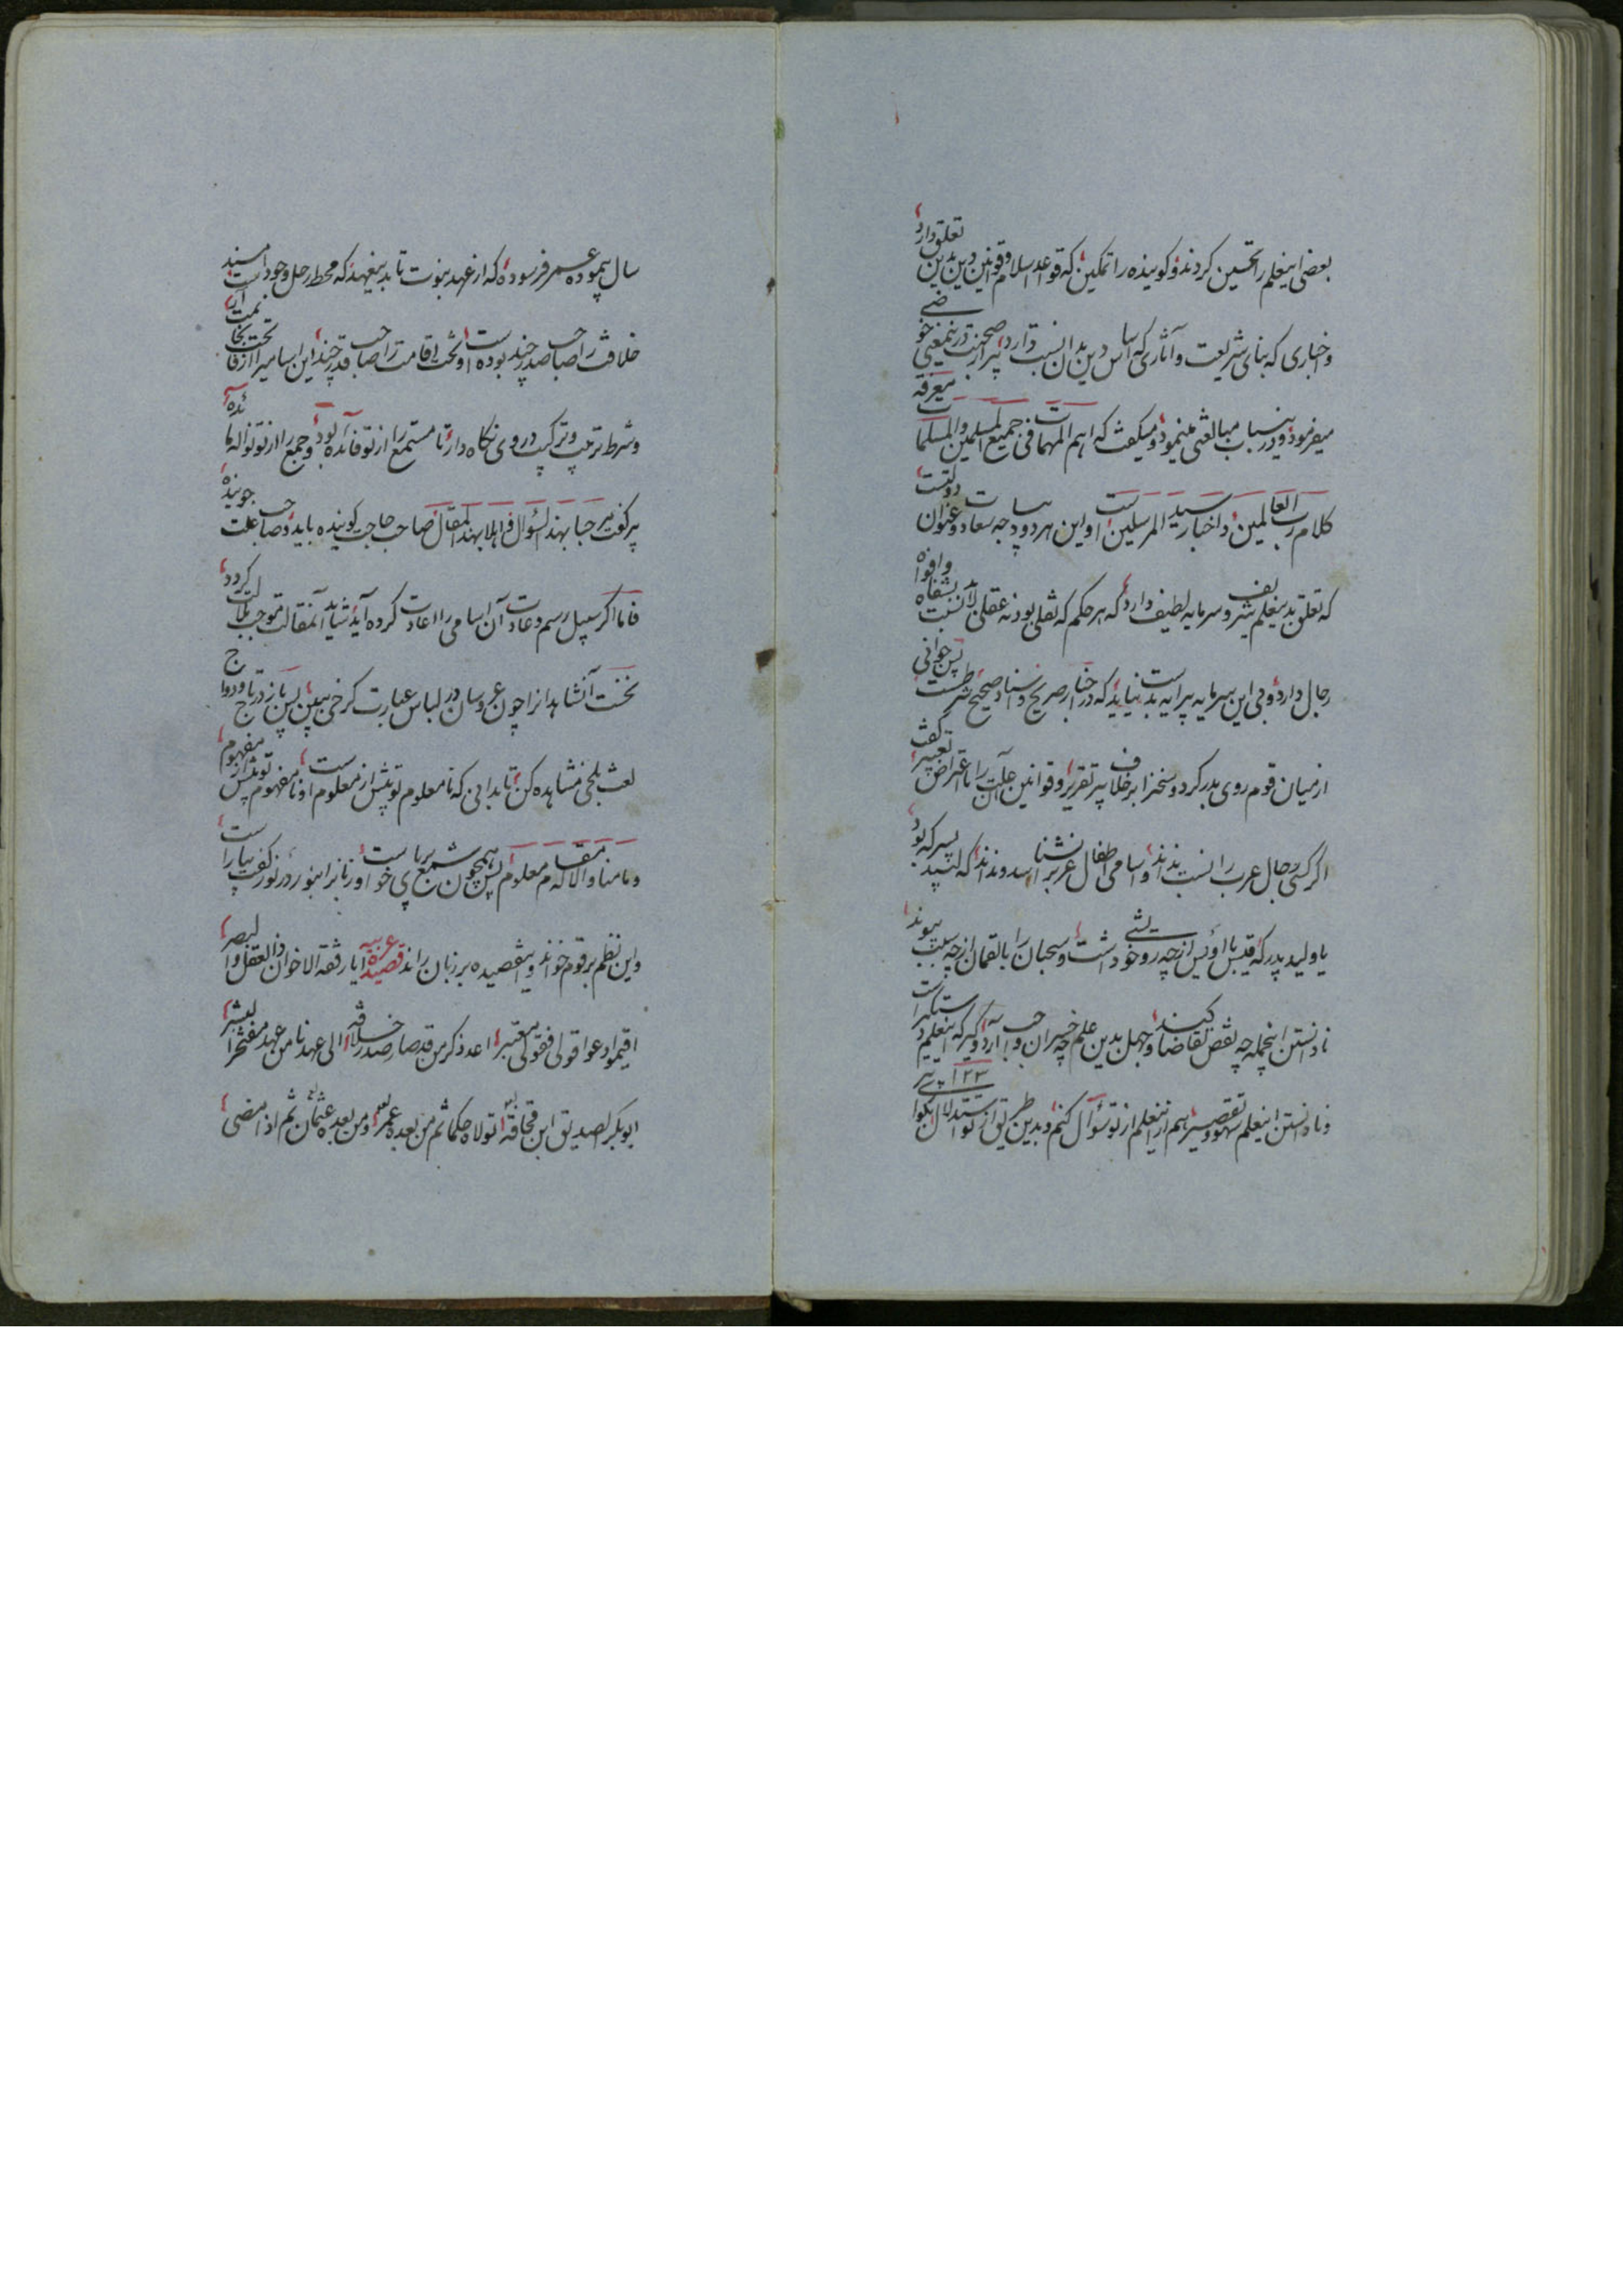 بعضی اینعلم را تحسین کردند و کوینده را تمکین که قواعد اسلام و قوانین دین بدین تعلق دارد
و اخباری که بنای شریعت و آثاری که اساس دین بدان نسبت دارد پیر از صحت در ینمعنی خوضی
میفرمود و درینباب مبالغتی مینمود و میکفت که اهم المهمات فی جمیع المسلمین والمسلمات معرفة
کلام رب العالمین و اخبار سید المرسلین است و این هر دو دیباجه سعادت و عنوان دولتست
که تعلق بدینعلم شریف و سرمایه لطیف دارد که هر حکم که نقلی بود نه عقلی لابد نسبت بشفاه و افواه
رجال دارد و بی این سرمایه پیرایه بدست نیاید که در اخبار صریح و اسناد صحیح شرطست پس جوانی
از میان قوم روی بدر کرد و سخن را بر خلاف پیر تقریر و قوانین علت آن را باعتراض تعبیر کفت
اکر کسی رجال عرب را نسبت نداند و اسامی اطفال عرب را نشناسد و نداند که لبید پسر که بود
یا ولید پدر که قیس با اویس از چه رو خویشی داشت و سحبان را با لقمان از چه سبب پیوند
نادانستن اینجمله چه نقص تقاضا کند و جهل بدین علم چه خسران واجب آرد و کیر که اینعلم در استکراست
و نادانستن اینعلم سهو و تقصیر هم از اینعلم از تو سؤال کنم و بدین طریق از تو استدلال بکوا
۱۲۳
سال پیموده عمر فرسوده که از عهد نبوت تا بدینعهد که محط رحل وجود است مسند
خلافت را صاحب صدر چند بوده است و تخت اقامت را صاحب قدر چند این اسامی را از فاتحت بخاتمت آر
و شرط ترتیب و ترکیب در وی نکاه دار تا مستمع را از تو فائده بود و جمع را از تو نواله مائده
پیر کفت مرحبا بهذا السؤال و اهلا بهذا المقال صاحب حاجت کوینده باید و صاحب علت جوینده
فاما اکر سبیل رسم و عادت آن اسامی را اعادت کرده آید شاید آنمقالت موجب ملالت کردد
نخست آن شاهدان را چون عروسان در لباس عبارت کرخی ببین پس باز در تاج و دواج
لعبت بلخی مشاهده کن تا بدانی که نامعلوم تو بیش از معلوم است و نامفهوم تو بیش از مفهوم
و ما منا الا له مقام معلوم پس همچون شمع بر پای خواست و زبان برا بنور در نور کف بیاراست
و این نظم بر قوم خواند و اینقصیده بر زبان راند قصیدة عربیه ایا رفقة الاخوان ذا العقل والبصر
اقیموا دعوا قولی فقولی معتبر اعد ذکر من قد صار صدر خلافة الی عهدنا من عهد مفتخر البشر
ابوبکر الصدیق ابن قحافة تولاه حکما ثم من بعده عمر و من بعده عثمان ثم اذا مضی